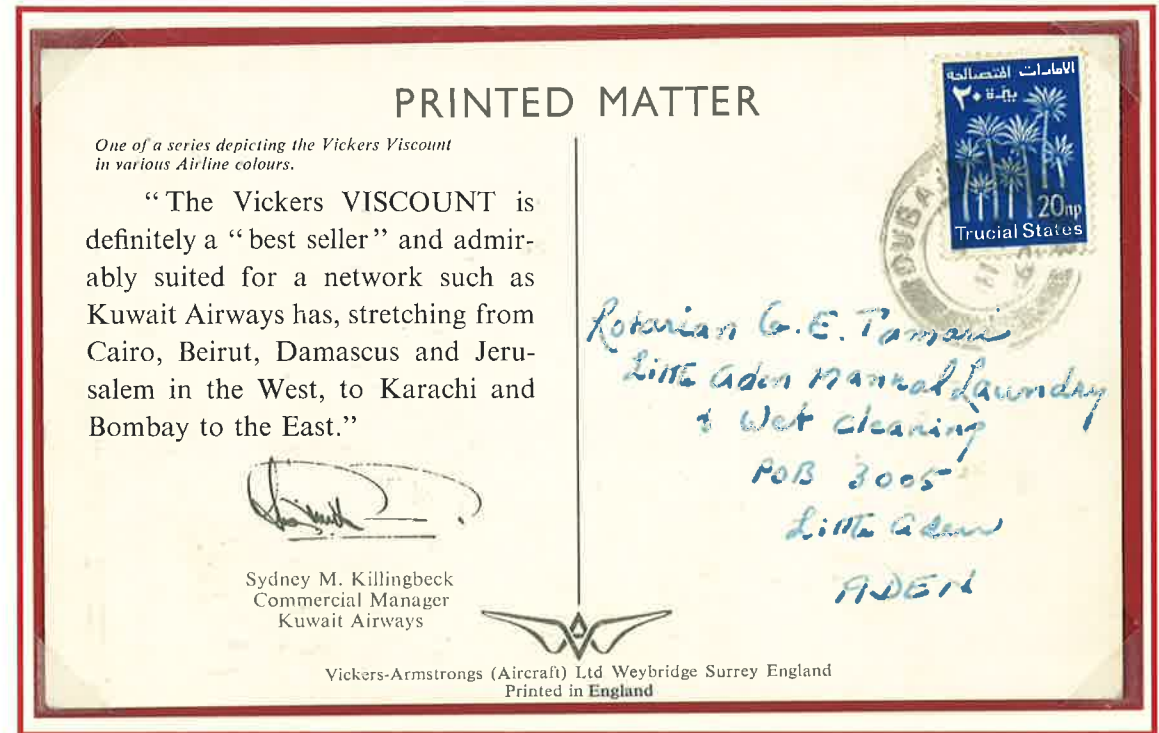 PRINTED MATTER
One of a series depicting the Vickers Viscount
in various Airline colours.
“The Vickers VISCOUNT is
definitely a “best seller” and admir-
ably suited for a network such as
Kuwait Airways has, stretching from
Cairo, Beirut, Damascus and Jeru-
salem in the West, to Karachi and
Bombay to the East.”
Sydney M. Killingbeck
Commercial Manager
Kuwait Airways
Vickers-Armstrongs (Aircraft) Ltd Weybridge Surrey England
Printed in England
الامارات المتصالحة
٣٠
20np
Trucial States
DUBAI
Rotarian G.E. Tamari
Little Aden Manual Laundry
& Wet Cleaning
POB 3005
Little Aden
ADEN